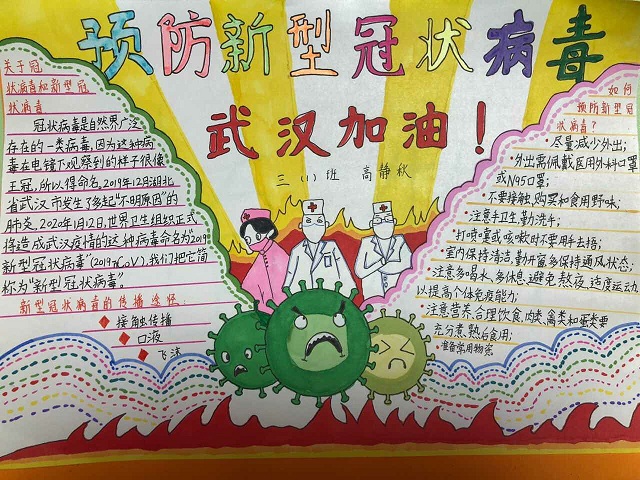 预防新型冠状病毒
武汉加油！
三（1）班 高静秋
关于冠
状病毒和新型冠
状病毒
冠状病毒是自然界广泛
存在的一类病毒,因为这种病
毒在电镜下观察到的样子很像
王冠,所以得命名。2019年12月湖北
省武汉市发生了多起"不明原因"的
肺炎。2020年1月12日世界卫生组织正式
将造成武汉疫情的这种病毒命名为"2019
新型冠状病毒"(2019-nCoV)我们把它简
称为"新型冠状病毒"。
新型冠状病毒的传播途径:
接触传播
口液
飞沫
如何
预防新型冠
状病毒?
·尽量减少外出;
·外出需佩戴医用外科口罩
或N95口罩;
·不要接触,购买和食用野味;
·注意手卫生,勤洗手;
·打喷嚏或咳嗽时不要用手去捂;
·室内保持清洁,勤开窗多保持通风状态;
·注意多喝水,多休息,避免熬夜,适度运动
以提高个体免疫能力;
·注意营养,合理饮食,肉类禽类和蛋类要
充分煮熟后食用;
·准备常用物资